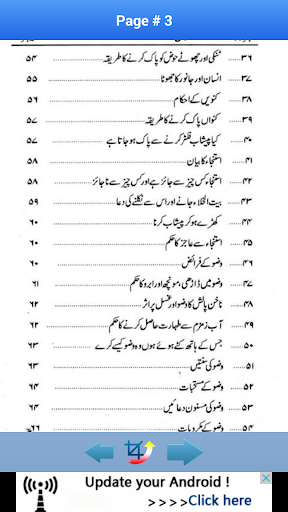 Page # 3
۳۶ ٹنکی اور چھوٹے حوض کو پاک کرنے کا طریقہ ۵۴
۳۷ انسان اور جانور کا جھوٹا ۵۵
۳۸ کنویں کے احکام ۵۶
۳۹ کنواں پاک کرنے کا طریقہ ۵۷
۴۰ کیا پیشاب فلٹر کرنے سے پاک ہو جاتا ہے ۵۷
۴۱ استنجاء کا بیان ۵۸
۴۲ استنجاء کس چیز سے جائز ہے اور کس چیز سے ناجائز ۵۸
۴۳ بیت الخلاء جانے اور اس سے نکلنے کی دعا ۵۹
۴۴ کھڑے ہو کر پیشاب کرنا ۶۰
۴۵ استنجاء سے عاجز کا حکم ۶۰
۴۶ وضو کے فرائض ۶۰
۴۷ وضو میں ڈاڑھی، مونچھ اور ابرو کا حکم ۶۱
۴۸ ناخن پالش کا وضو اور غسل پر اثر ۶۲
۴۹ آب زمزم سے طہارت حاصل کرنے کا حکم ۶۲
۵۰ جس کے ہاتھ کٹے ہوئے ہوں وہ وضو کیسے کرے ۶۳
۵۱ وضو کی سنتیں ۶۳
۵۲ وضو کے مستحبات ۶۴
۵۳ وضو کی مسنون دعائیں ۶۴
۵۴ وضو کے مکروہات ۶۶
Update your Android !
> > > >Click here